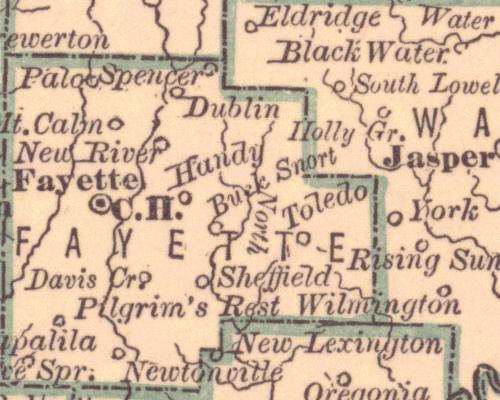 Eldridge Water
ewerton
Black Water
Palo Spencer
South Lowel
Dublin
Mt. Calm
Holly Gr. W A
New River
Handy
Jasper
Fayette C.H.
Buck Snort
North
Toledo
York
F A Y E T T E
Rising Sun
Davis Cr.
Sheffield
Pilgrim's Rest Wilmington
palila
New Lexington
ve Spr.
Newtonville
Oregonia